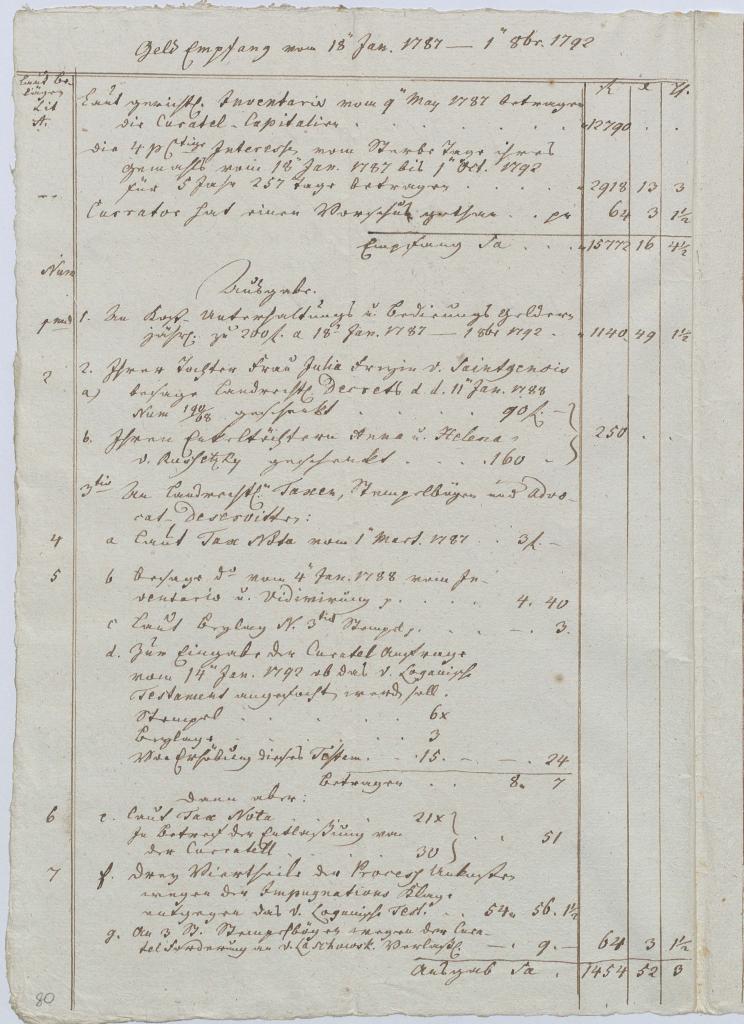 Geld Empfang vom 18n Jan. 1787 — 1n 8br. 1792
Laut be-
lägen
Lit
A.
fl x d.
Laut gerichtl. Inventario vom 9n May 1787 betragen
die Curatel-Capitalien . . . 12790 . .
die 4 pCtige Interessen vom Sterbe Tage ihres
Gemahls vom 18n Jan. 1787 bis 1n Oct. 1792
für 5 Jahr 257 Tage betragen . . 2918 13 3
Currator hat einen Vorschuß gethan . . pr 64 3 1½
Empfang Sa . . . 15772 16 4½
Num
Ausgabe.
1. An Kost- Unterhaltungs u. Bedienungs Geldern
jährl. zu 200f. a 18n Jan. 1787 — 1 8br 1792 . 1140 49 1½
2 2. Ihrer Tochter Frau Julia Freyin v. Saintgenois
a) besage Landrechtl. Decrets d. d. 11n Jan. 1788
Num geschenkt . . . . 90f. —
b. Ihren Enkeltöchtern Anna u. Helena 250 . .
v. geschenkt . . . 160 —
3tio An Landrechtl. Taxen, Stempelbögen und Advo-
cat- Deservitten:
4 a Laut Tax Nota vom 1n Mart. 1787 . . 3f. —
5 b besage do vom 4n Jan. 1788 vom In-
ventario u. Vidimirung . . . 4. 40
c Laut Beylag N. 3 Stempel . . . — . 3.
d. Zur Eingabe der Curatel Anfrage
vom 14n Jan. 1792 ob das v. Loganische
Testament angefocht werd. soll.
Stempel . . . . 6x
Beylage . . . . 3
Von Erhöbung dieses Testam. . . 15. — — . 24
betragen . . 8. 7
dann aber:
6 e. Laut Tax Nota . . . 21x
In Betref der Entlaßung von . . 51
der Curatell . . . 30
7 f. Drey Viertheile der Process Unkosten
wegen der Impugnations Klage
entgegen das v. Loganische Test. . . 54. 56. 1½
g. An 3 St. Stempelbögen wegen der Cura-
tel Forderung an v. Verlaß. — . 9. — 64 3 1½
Ausgab Sa . 1454 52 3
80